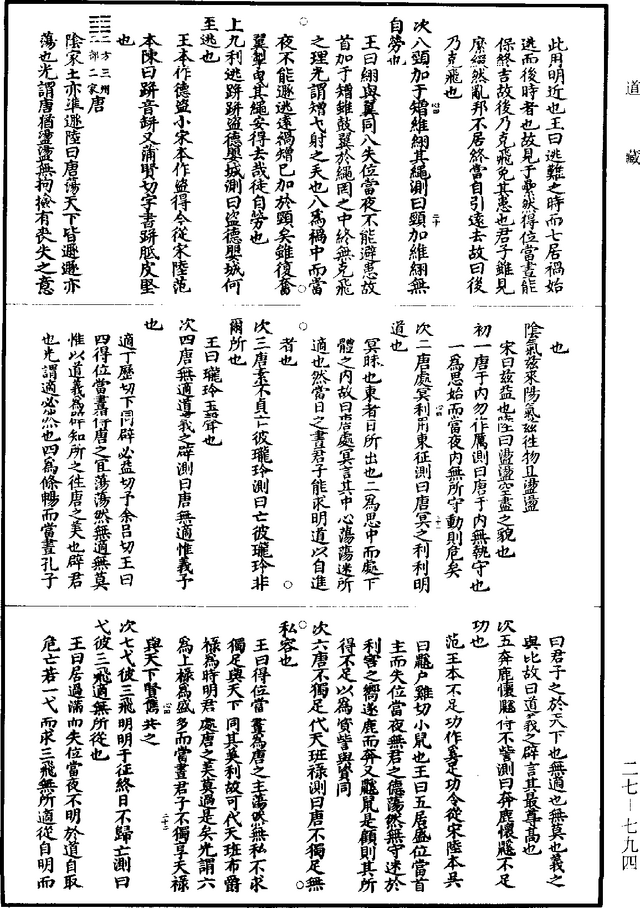 道藏
此用明近也王曰逃難之時而七居禍始
逃而後時者也故見于纍然得位當晝能
保終吉故後乃克飛免其患也君子雖見
縻纆然亂邦不居終當自引遠去故曰後
乃克飛也
次八頸加于矰維縶其繩測曰頸加維縶無
自勞也
王曰縶與翼同八失位當夜不能避患故
首加于矰雖鼓翼於繩罔之中終無克飛
之理光謂矰弋射之矢也八爲禍中而當
夜不能遯逃遠禍矰已加於頸矣雖復奮
翼掣曳其繩安得去哉徒自勞也
上九利逃跰跰盜德嬰城測曰盜德嬰城何
至逃也
王本作德盜小宋本作盜得今從宋陸范
本陳曰跰音餅又蒲賢切字書跰胝皮堅
也
一方三州
二部二家唐
陰家土亦準遯陸曰唐蕩天下皆遯遯亦
蕩也光謂唐猶盪盪無拘撿有喪失之意
也
陰氣茲來陽氣茲往物且盪盪
宋曰茲益也陸曰盪盪空盡之貌也
初一唐于内勿作厲測曰唐于内無執守也
一爲思始而當夜内無所守動則危矣
次二唐處冥利用東征測曰唐冥之利利明
道也
冥昧也東者日所出也二爲思中而處下
體之内故曰唐處冥言其中心蕩蕩迷所
適也然當日之晝君子能求明道以自進
者也
次三唐素不貞亡彼瓏玲測曰亡彼瓏玲非
爾所也
王曰瓏玲玉聲也
次四唐無適道義之辟測曰唐無適惟義予
也
適丁歷切下同辟必益切予余吕切王曰
四得位當晝行唐之宜蕩蕩然無適無莫
惟以道義爲辟知所之往唐之美也辟君
也光謂適必然也四爲條暢而當晝孔子
曰君子之於天下也無適也無莫也義之
與比故曰道義之辟言其最尊高也
次五奔鹿懷鼷得不訾測曰奔鹿懷鼷不足
功也
范王本不足功作奚足功今從宋陸本吴
曰鼷户雞切小鼠也王曰五居盛位當首
主而失位當夜無君之德蕩然無守迷於
利害之嚮逐鹿而奔又鼷鼠是顧則其所
得不足以爲資訾與貲同
次六唐不獨足代天班祿測曰唐不獨足無
私容也
王曰得位當晝爲唐之主蕩然無私不求
獨足與天下同其美利故可代天班布爵
祿爲時明君處唐之美莫過是矣光謂六
爲上祿爲盛多而當晝君子不獨享天祿
與天下賢儁共之
次七弋彼三飛明明于征終日不歸亡測曰
弋彼三飛適無所從也
王曰居過滿而失位當夜不明於道自取
危亡若一弋而求三飛無所適從自明而
二七—七九四